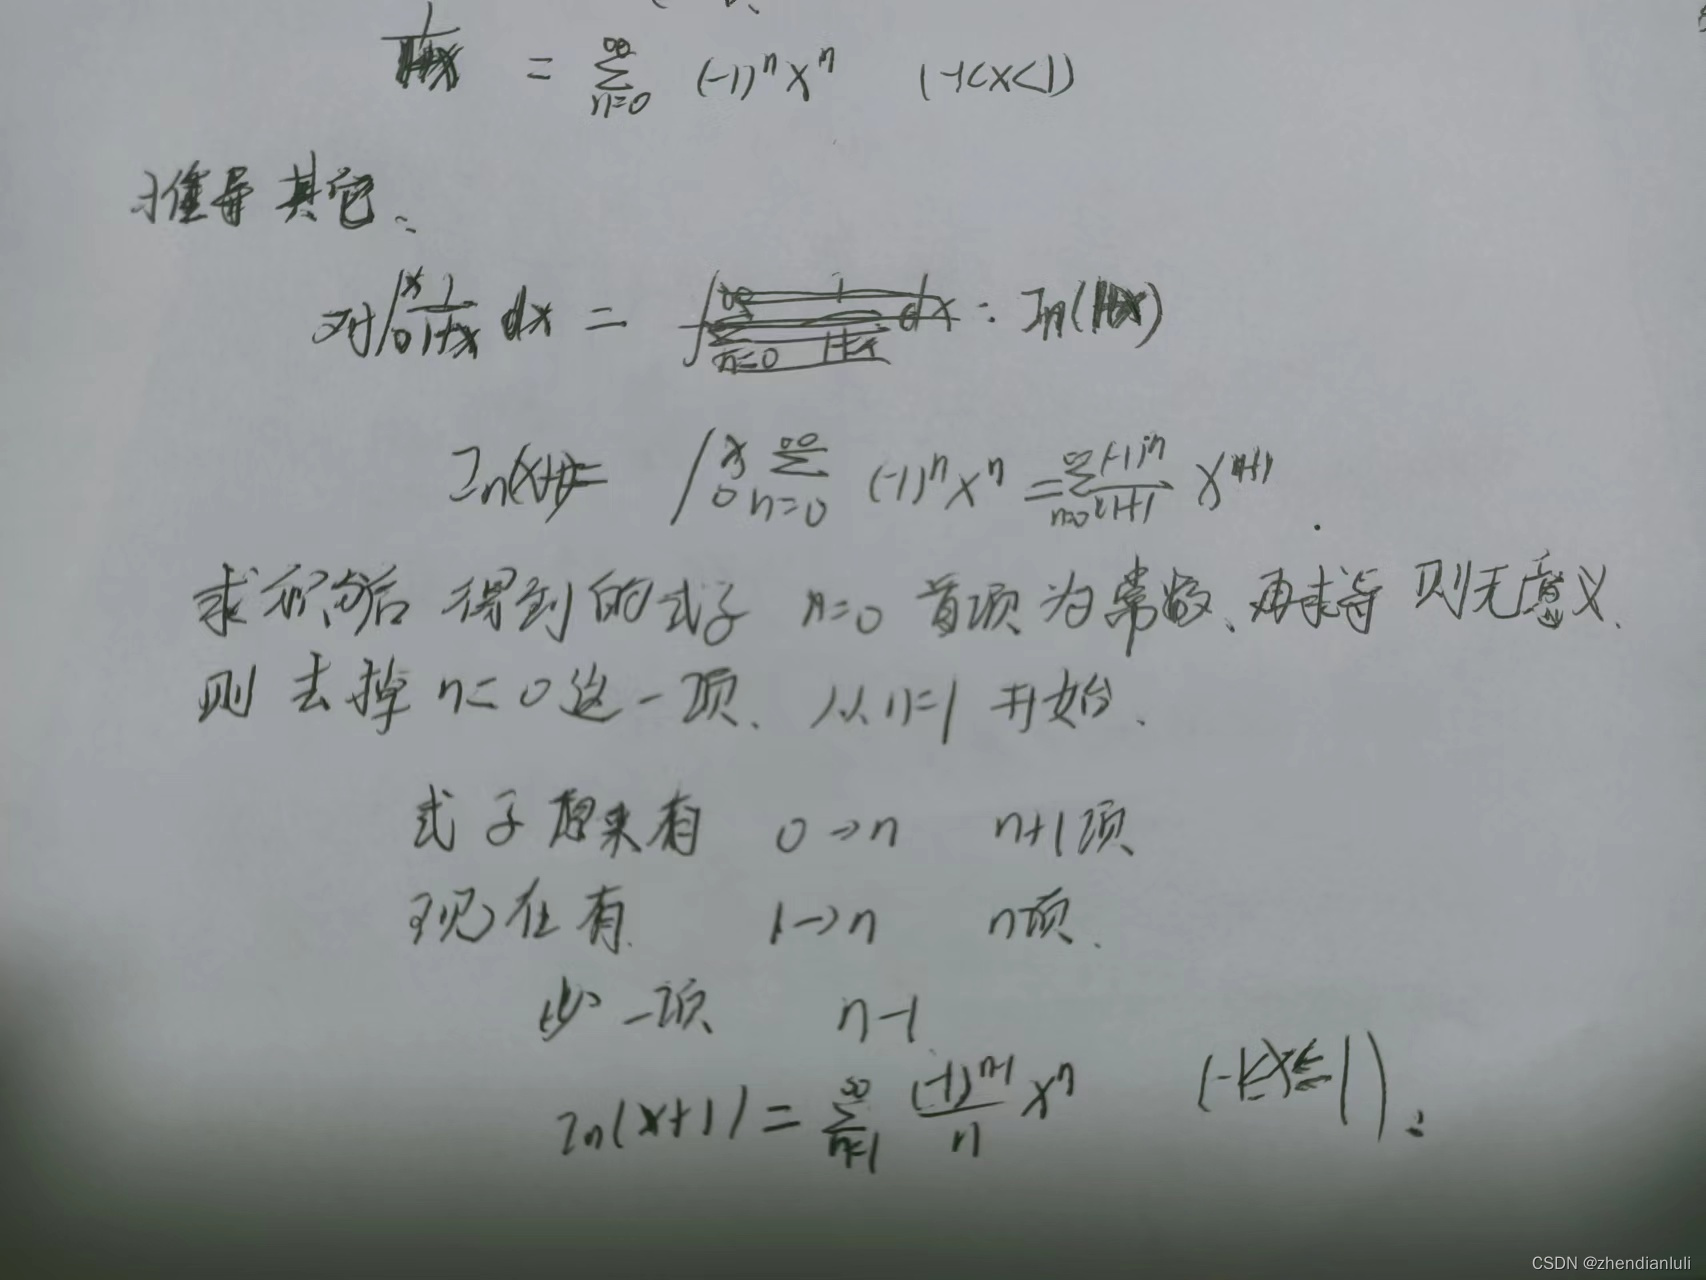 1/(1+x) = ∑_{n=0}^{∞} (-1)^n x^n (-1<x<1)
推导其它、
对∫_0^x 1/(1+x) dx = : In(1+x)
In(x+1)= ∫_0^x ∑_{n=0}^{∞} (-1)^n x^n = ∑_{n=0}^{∞} (-1)^n/(n+1) x^{n+1}
求积分后 得到的式子 n=0 首项为常数、再求导 则无意义、
则 去掉 n=0 这一项、从n=1 开始、
式子原来有 0→n n+1项
现在有 1→n n项、
少一项 n-1
In(x+1) = ∑_{n=1}^{∞} (-1)^{n-1}/n x^n (-1<x≤1)、
CSDN @zhendianluli